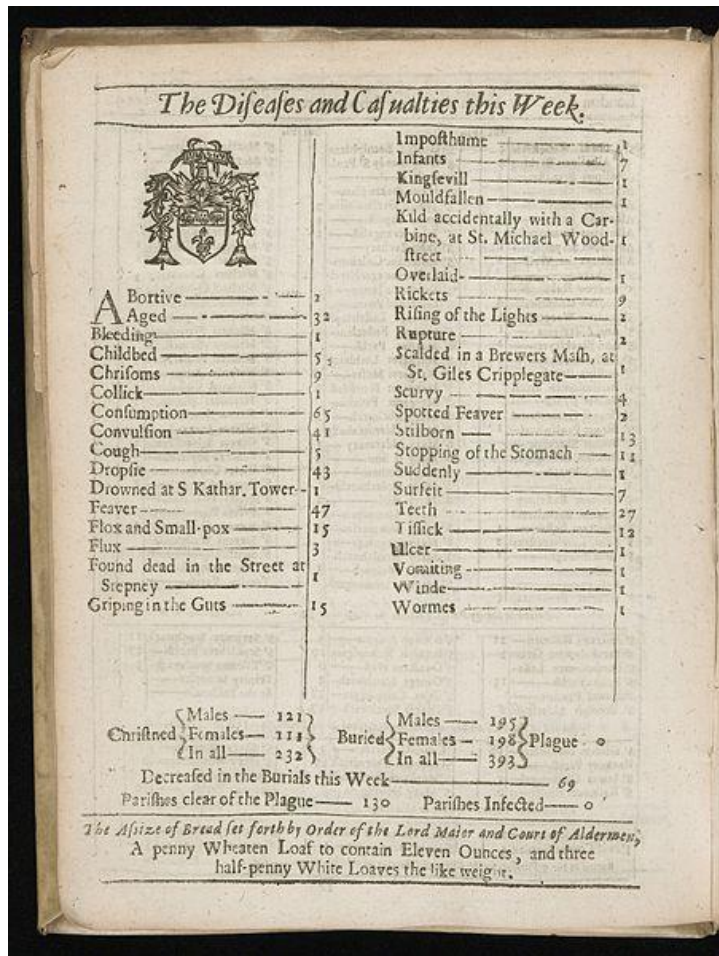 The Diſeaſes and Caſualties this Week.
ABortive 2
Aged 32
Bleeding 1
Childbed 5
Chriſoms 9
Collick 1
Conſumption 65
Convulſion 41
Cough 5
Dropſie 43
Drowned at S Kathar. Tower 1
Feaver 47
Flox and Small-pox 15
Flux 3
Found dead in the Street at
Stepney 1
Griping in the Guts 15
Impoſthume 1
Infants 7
Kingſevill 1
Mouldfallen 1
Kild accidentally with a Car-
bine, at St. Michael Wood- 1
ſtreet
Overlaid 1
Rickets 9
Riſing of the Lights 2
Rupture 2
Scalded in a Brewers Maſh, at
St. Giles Cripplegate 1
Scurvy 4
Spotted Feaver 2
Stilborn 13
Stopping of the Stomach 11
Suddenly 1
Surfeit 7
Teeth 27
Tiſſick 12
Ulcer 1
Vomiting 1
Winde 1
Wormes 1
Chriſtned Males 121 Females 111 In all 232
Buried Males 195 Females 198 In all 393 Plague 0
Decreaſed in the Burials this Week 69
Pariſhes clear of the Plague 130 Pariſhes Infected 0
The Aſsize of Bread ſet forth by Order of the Lord Maior and Court of Aldermen,
A penny Wheaten Loaf to contain Eleven Ounces, and three
half-penny White Loaves the like weight.